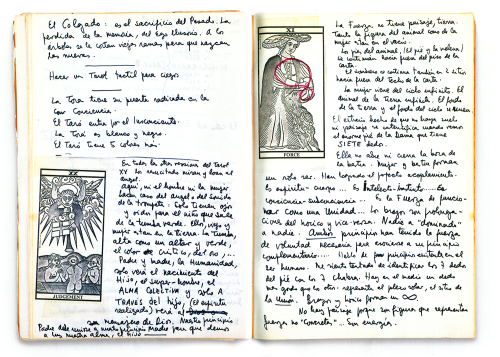 El Colgado: es el sacrificio del Pasado. La
perdida de la memoria, del ego ilusorio, a los
árboles se le cortan viejas ramas para que nazcan
las nuevas.
Hacer un Tarot táctil para ciegos
La Tora tiene su puente radicada en la
Conciencia.
El Taro entra por el Inconsciente.
La Tora es blanco y negro.
El Taro tiene 5 colores más.
En todas las otras versiones del Tarot
XX los resucitados miran y tocan al
angel.
aquí, ni el hombre ni la mujer
hacen caso del angel o del sonido
de la trompeta. Solo tienen ojos
y oidos para el niño que sale
de la tumba verde. Ellos, viejo y
mujer estan en la tierra. La tumba,
alta como un altar y verde,
el color de Cristo, del
Padre y madre, la Humanidad,
solo verá el nacimiento del
Hijo, el super-hombre, el
ALMA COLECTIVA y solo A
TRAVES del Hijo, (El espíritu
realizado) verá al
mensajero de Dios. Nuestro principio
Padre debe unirse a nuestro principio Madre para que demos
a luz nuestra alma, el hijo
XX
JUDGEMENT
XI
FORCE
La Fuerza no tiene paisaje, tierra.
Tanto la figura del animal como de la
mujer estan en el vacío.
La piel del animal, (el pie y la
se continúan hacia fuera del piso de la
carta.
El sombrero se continua tambien
hacia fuera del techo de la carta.
La mujer viene del cielo infinito. El
animal de la tierra infinita. El fondo
de la tierra y el fondo del cielo se
El extraño hecho de que no haya suelo
ni paisaje se intensifica cuando vemos
el enorme pie de la Dama que tiene
SIETE dedos.
Ella no abre ni cierra la boca de
la bestia. Mujer y bestia forman
un solo ser. Han logrado el perfecto acoplamiento.
Es espíritu-cuerpo... Es Intelecto-Instinto...
Conciencia-subconciencia... Es la Fuerza de
como una Unidad... Los brazos son prolonga-
ciones del hocico y vice-versa. Nadie "domina"
a nadie. Ambos principios han tenido la fuerza
de voluntad necesaria para a su principio
complementario... de dos principios en el
ser humano. Me siento tentado de identificar los 7 dedos
del pié con los 7 Chakras. Hay en el medio un dedo
mas gordo que los otros: representa el plexo solar, el sitio de
la Unión. Brazos y hocico forman un ∞.
No hay paisaje porque son figuras que representan
fuerzas, no "concretas"... Son energia.